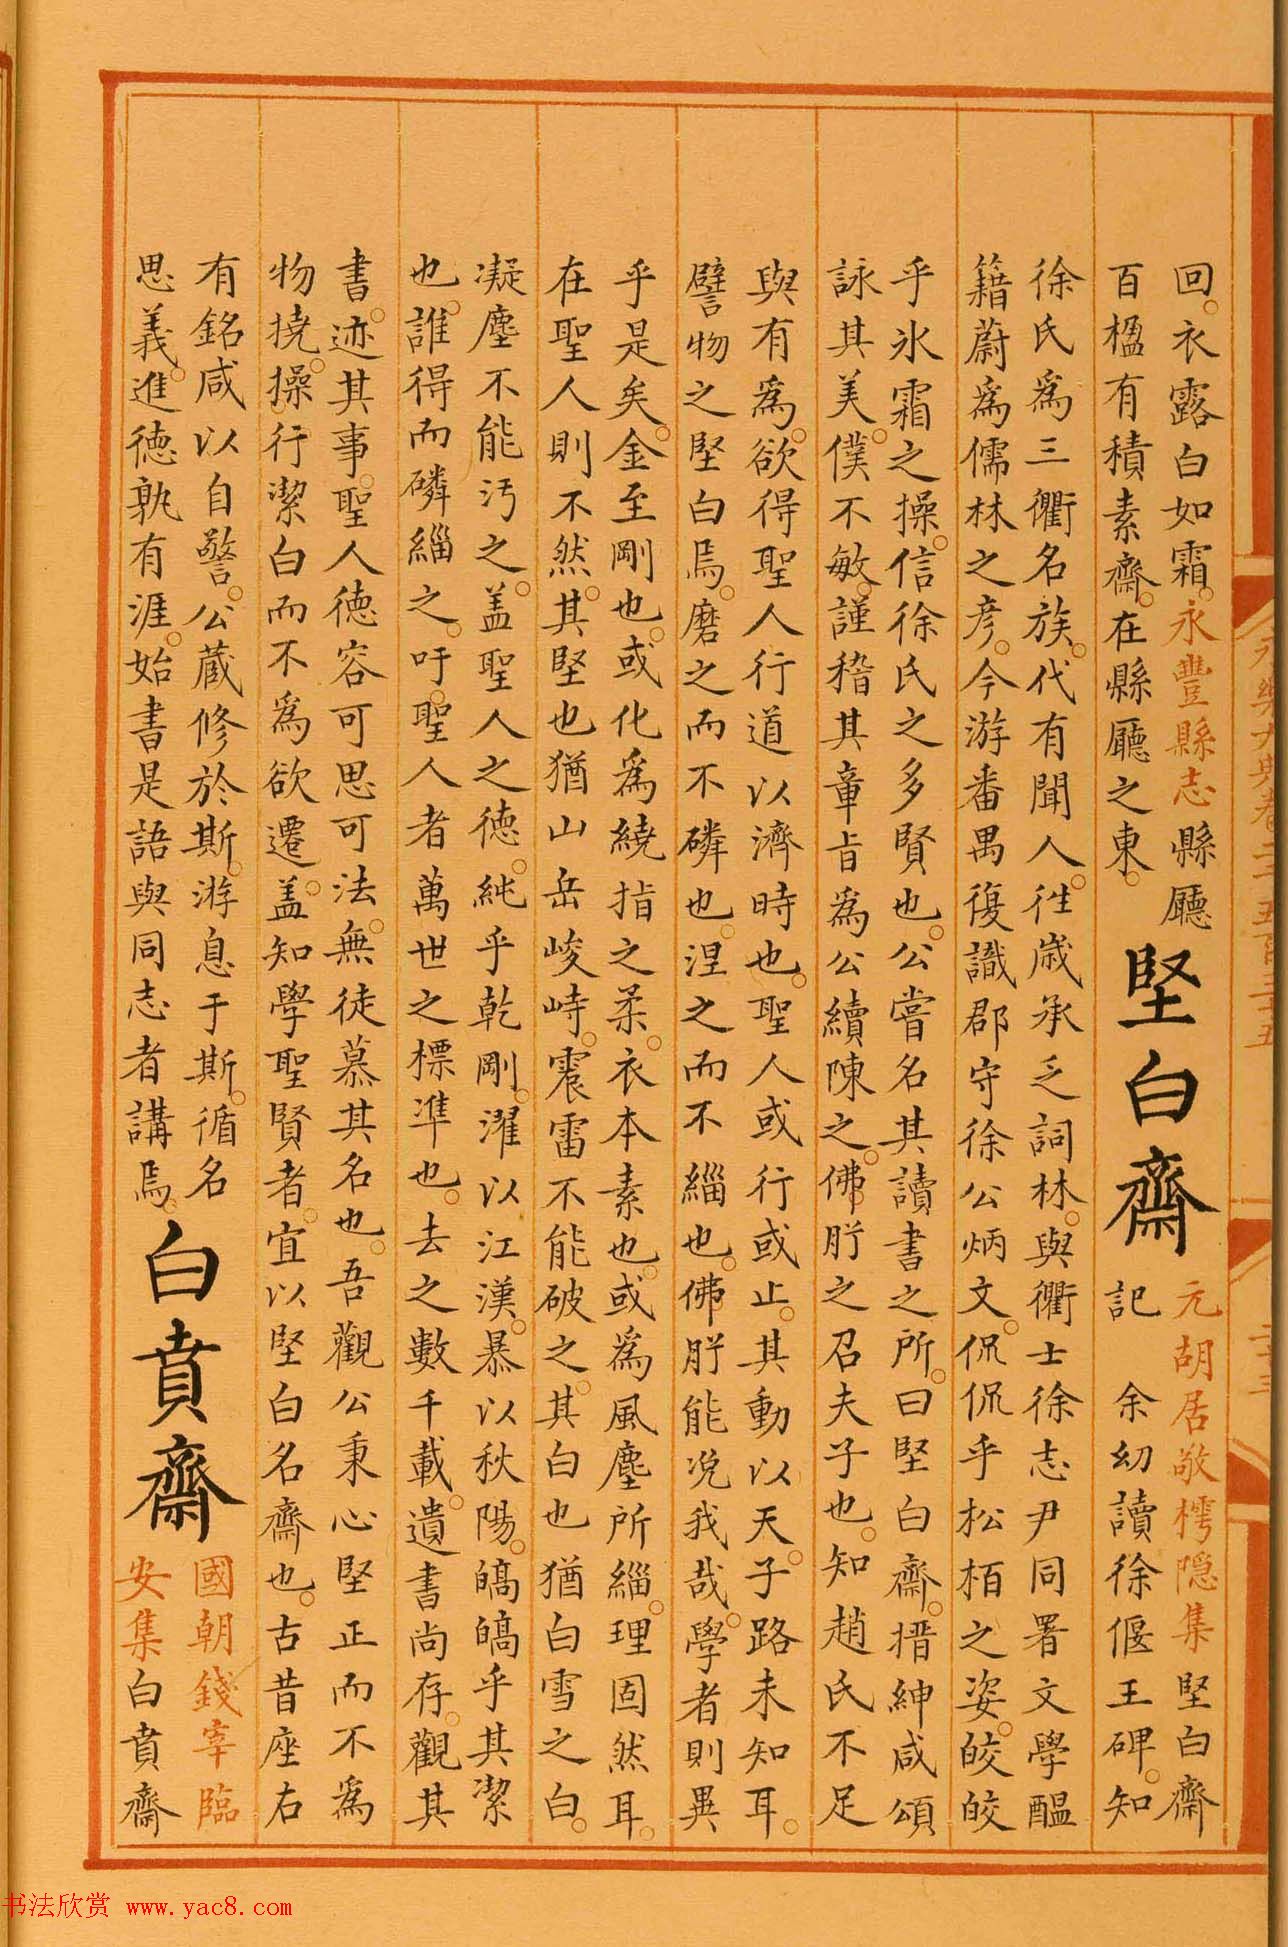 回衣露白如霜永豐縣志縣廳
百楹有積素齋在縣廳之東
堅白齋
元胡居敬樗隱集堅白齋
記 余幼讀徐偃王碑知
徐氏為三衢名族代有聞人往歲承乏詞林與衢士徐志尹同署文學醖
籍蔚為儒林之彥今游番禺復識郡守徐公炳文侃侃乎松栢之姿皎皎
乎氷霜之操信徐氏之多賢也公嘗名其讀書之所曰堅白齋搢紳咸頌
詠其美僕不敏謹稽其章旨為公續陳之佛肸之召夫子也知趙氏不足
與有為欲得聖人行道以濟時也聖人或行或止其動以天子路未知耳
譬物之堅白焉磨之而不磷也涅之而不緇也佛肸能凂我哉學者則異
乎是矣金至剛也或化為繞指之柔衣本素也或為風塵所緇理固然耳
在聖人則不然其堅也猶山岳峻峙震雷不能破之其白也猶白雪之白
凝塵不能汚之盖聖人之德純乎乾剛濯以江漢暴以秋陽皜皜乎其潔
也誰得而磷緇之吁聖人者萬世之標準也去之數千載遺書尚存觀其
書迹其事聖人德容可思可法無徒慕其名也吾觀公秉心堅正而不為
物撓操行潔白而不為欲遷盖知學聖賢者宜以堅白名齋也古昔座右
有銘咸以自警公蔵修於斯游息于斯循名
思義進德孰有涯始書是語與同志者講焉
白賁齋
國朝錢宰臨
安集白賁齋
永樂大典卷二千五百三十五
书法欣赏 www.yac8.com